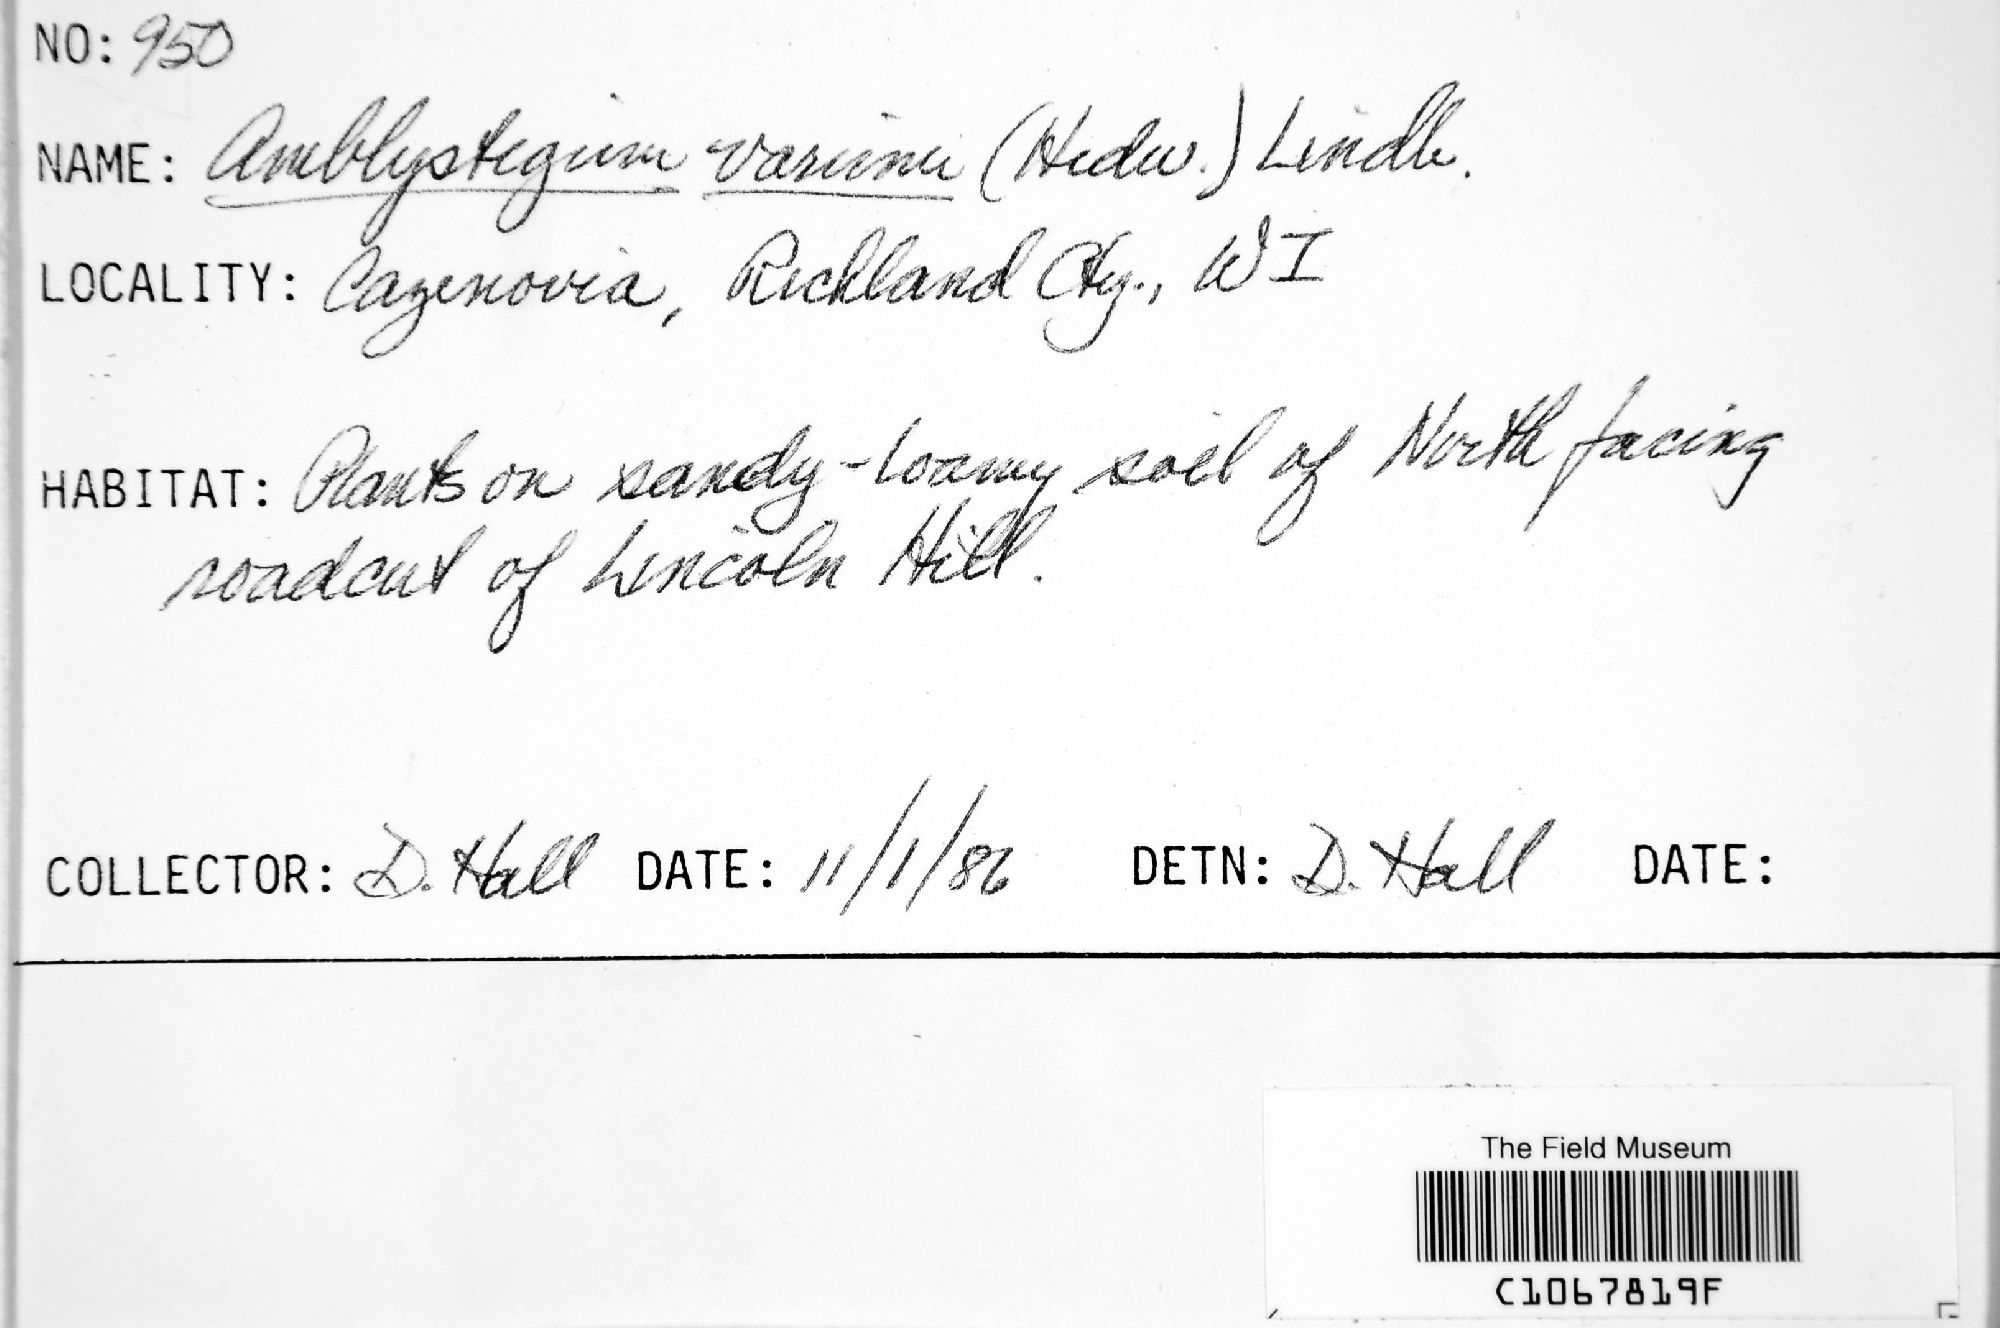 NO: 950
NAME: Amblystegium varium (Hedw.) Lindb.
LOCALITY: Cazenovia, Richland Cty., WI
HABITAT: Plants on sandy-loamy soil of North facing
roadcut of Lincoln Hill.
COLLECTOR: D. Hall DATE: 11/1/86 DETN: D. Hall DATE:
The Field Museum
C1067819F